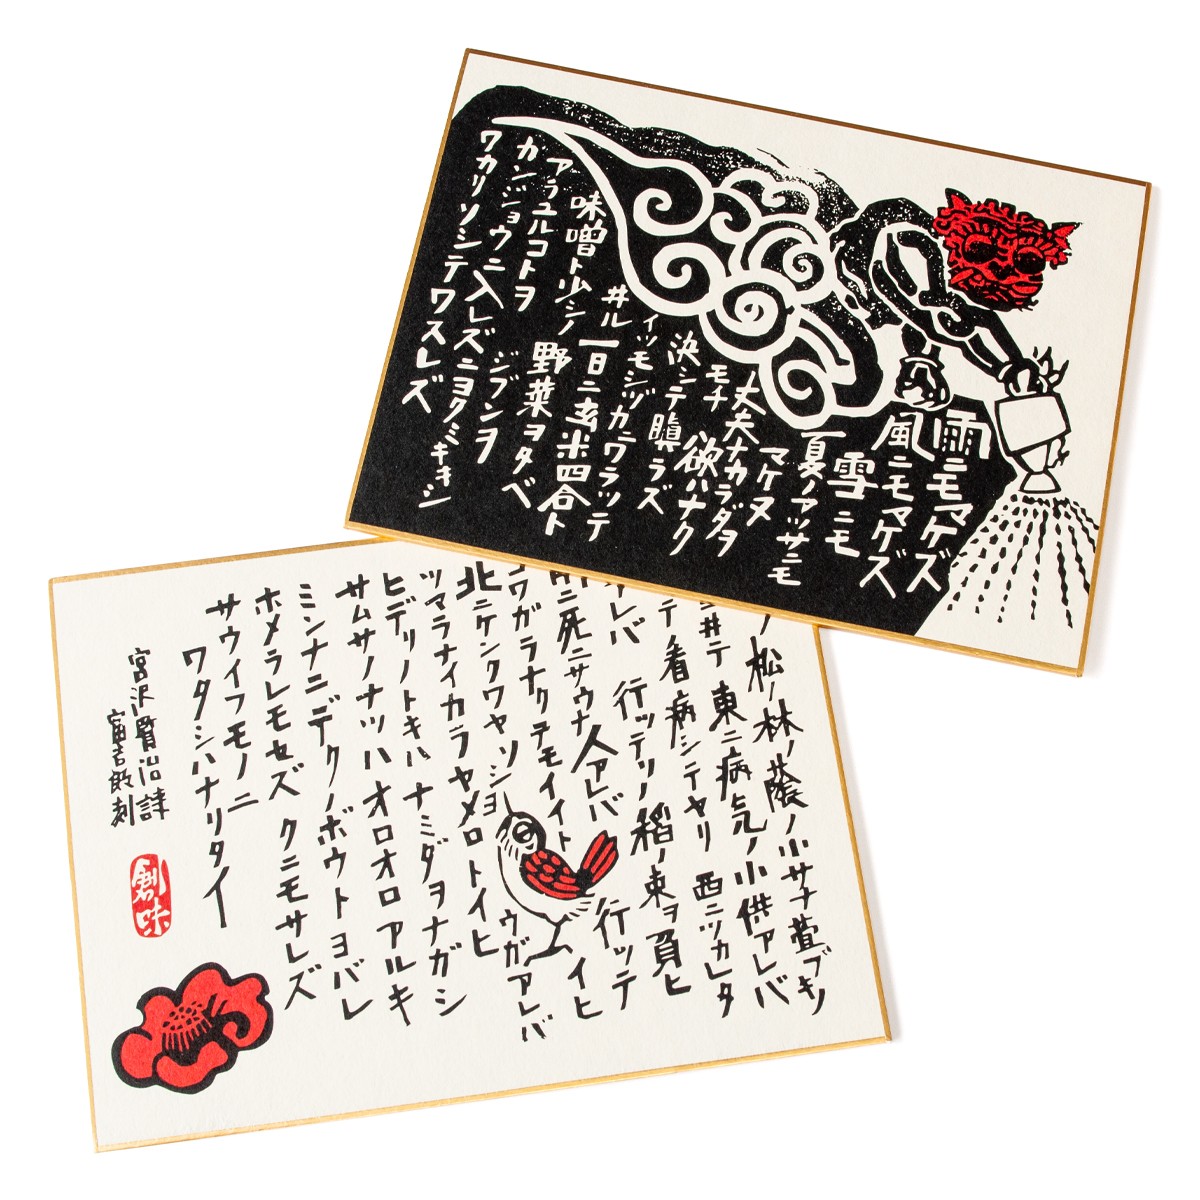 雨ニモマケズ
風ニモマケズ
雪ニモ
夏ノアツサニモ
マケヌ
丈夫ナカラダヲ
モチ 欲ハナク
決シテ瞋ラズ
イツモシヅカニワラッテ
井ル 一日ニ玄米四合ト
味噌ト少シノ 野菜ヲタベ
アラユルコトヲ ジブンヲ
カンジョウニ入レズニヨクミキキシ
ワカリソシテワスレズ
ノ松ノ林ノ蔭ノ小サナ萓ブキノ
井テ 東ニ病気ノ小供アレバ
テ看病シテヤリ 西ニツカレタ
アレバ 行ッテソノ稲ノ束ヲ負ヒ
ニ死ニサウナ人アレバ 行ッテ
コワガラナクテモイイト イヒ
北ニケンクワヤソショウガアレバ
ツマラナイカラヤメロトイヒ
ヒデリノトキハナミダヲナガシ
サムサノナツハオロオロアルキ
ミンナニデクノボウトヨバレ
ホメラレモセズ クニモサレズ
サウイフモノニ
ワタシハナリタイ
宮沢賢治詩
富吉郎刻
創味